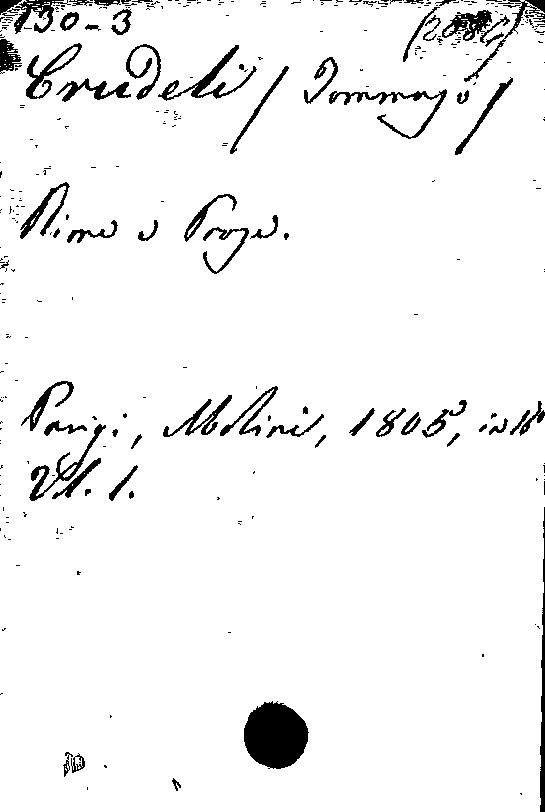 130-3
Crudeli / Tommaso /
Rime e Prose.
Parigi, Molini, 1805, in 18º
Vol. 1.